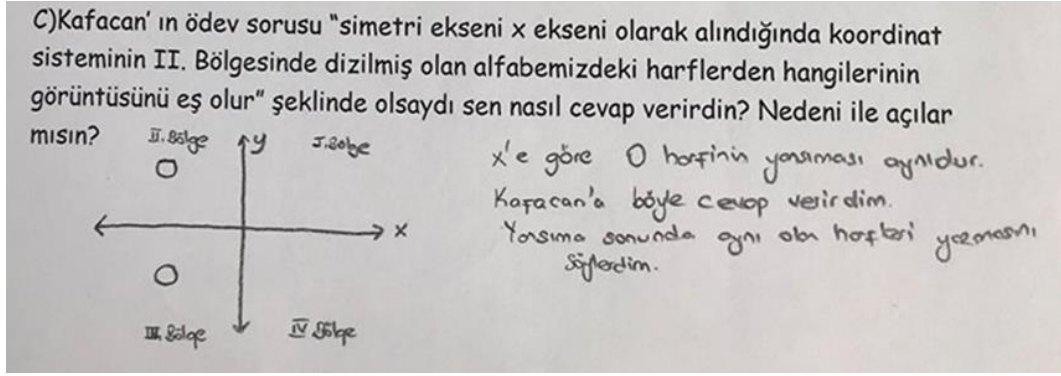 C)Kafacan' ın ödev sorusu "simetri ekseni x ekseni olarak alındığında koordinat
sisteminin II. Bölgesinde dizilmiş olan alfabemizdeki harflerden hangilerinin
görüntüsünü eş olur" şeklinde olsaydı sen nasıl cevap verirdin? Nedeni ile açılar
mısın?
II. Bölge y I. Bölge
O
x
O
III. Bölge IV Bölge
x'e göre O harfinin yansıması aynıdur.
Kafacan'a böyle cevap verirdim.
Yansıma sonunda aynı olan harfleri yazmasını
söylerdim.